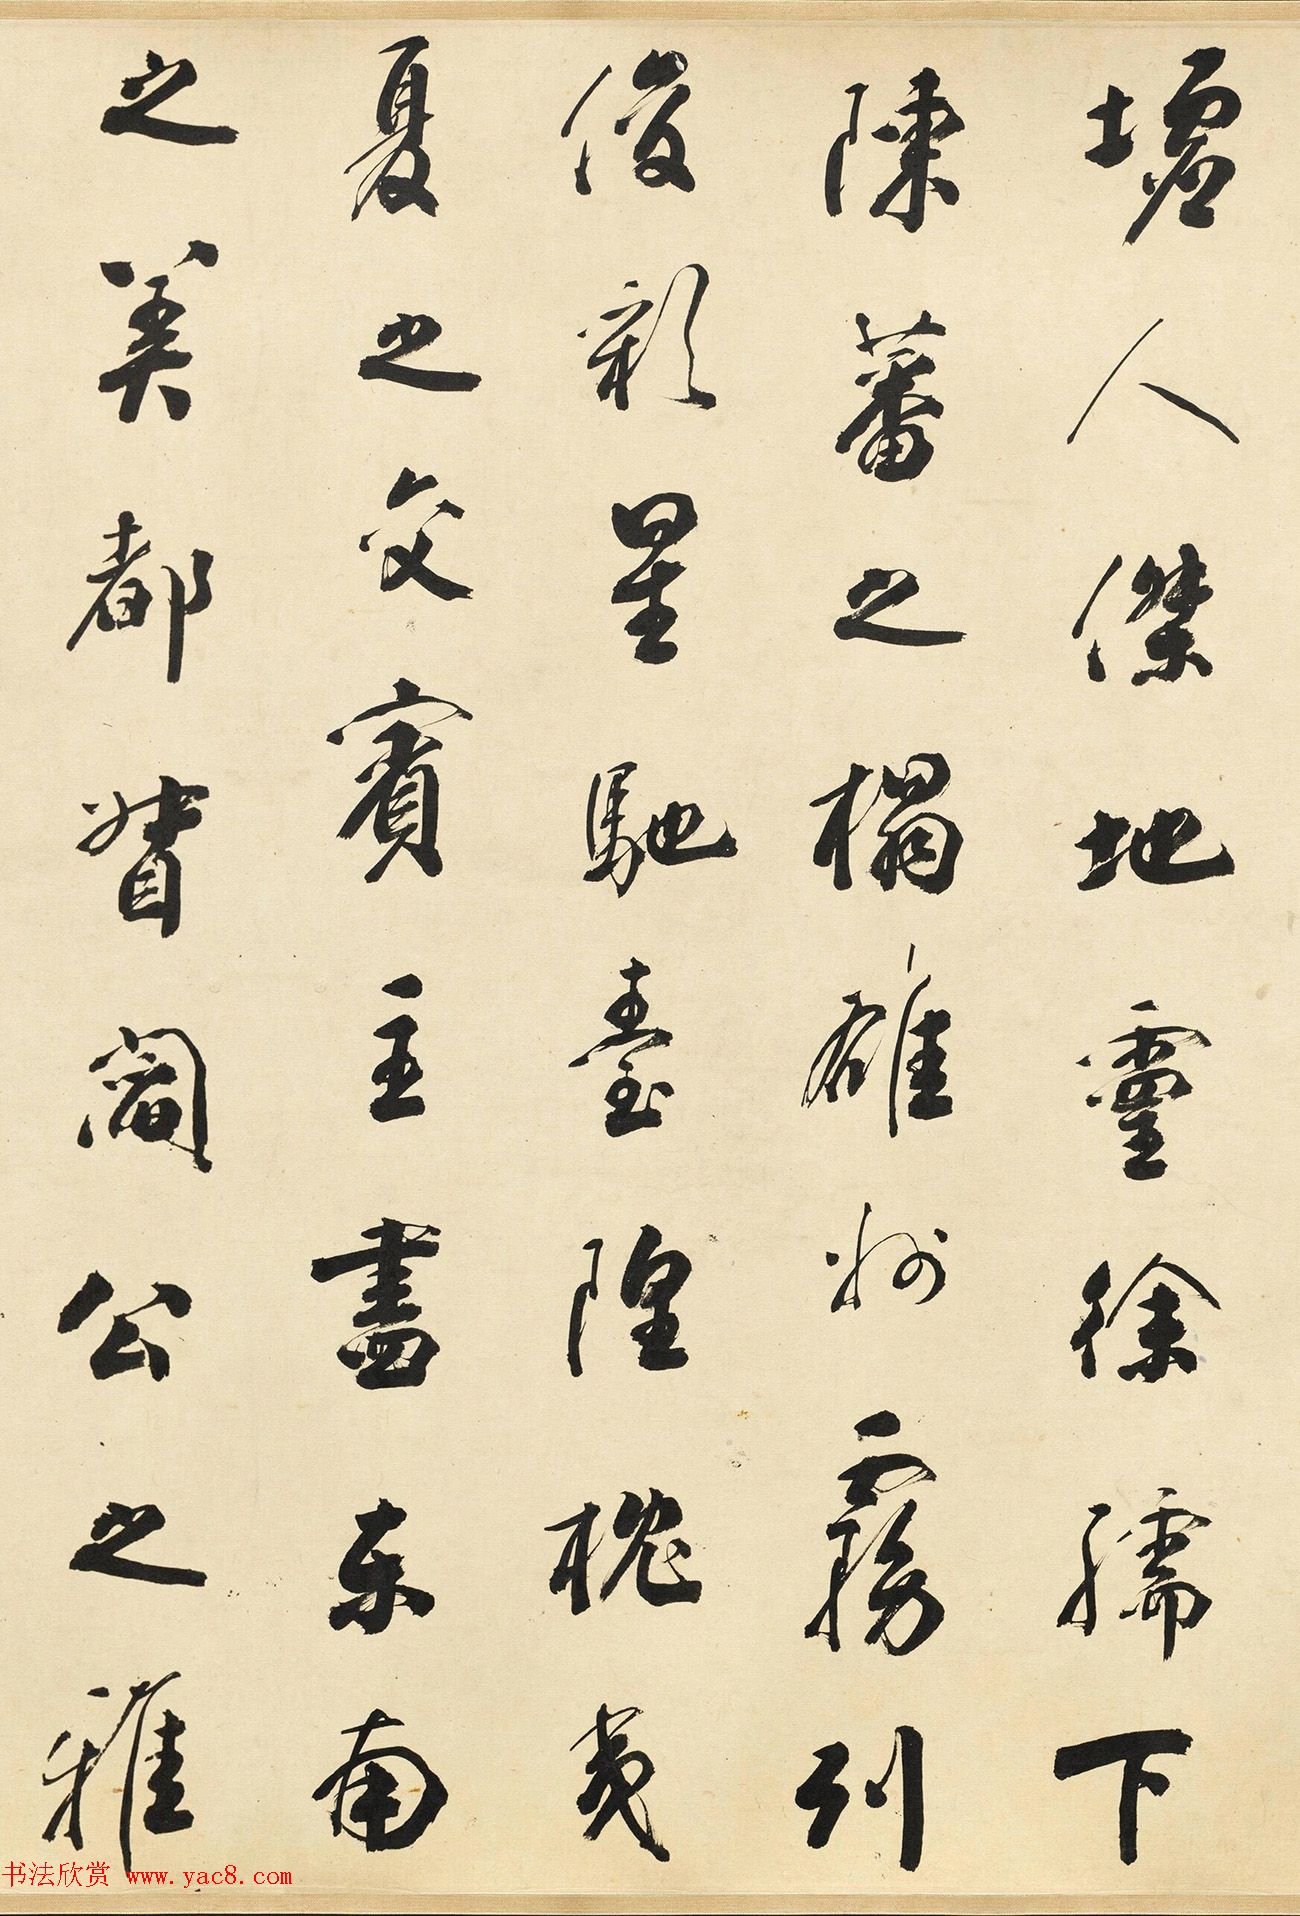 墟人傑地靈徐孺下
陳蕃之榻雄州霧列
俊彩星馳臺隍枕夷
夏之交賓主盡東南
之美都督閻公之雅
书法欣赏 www.yac8.com